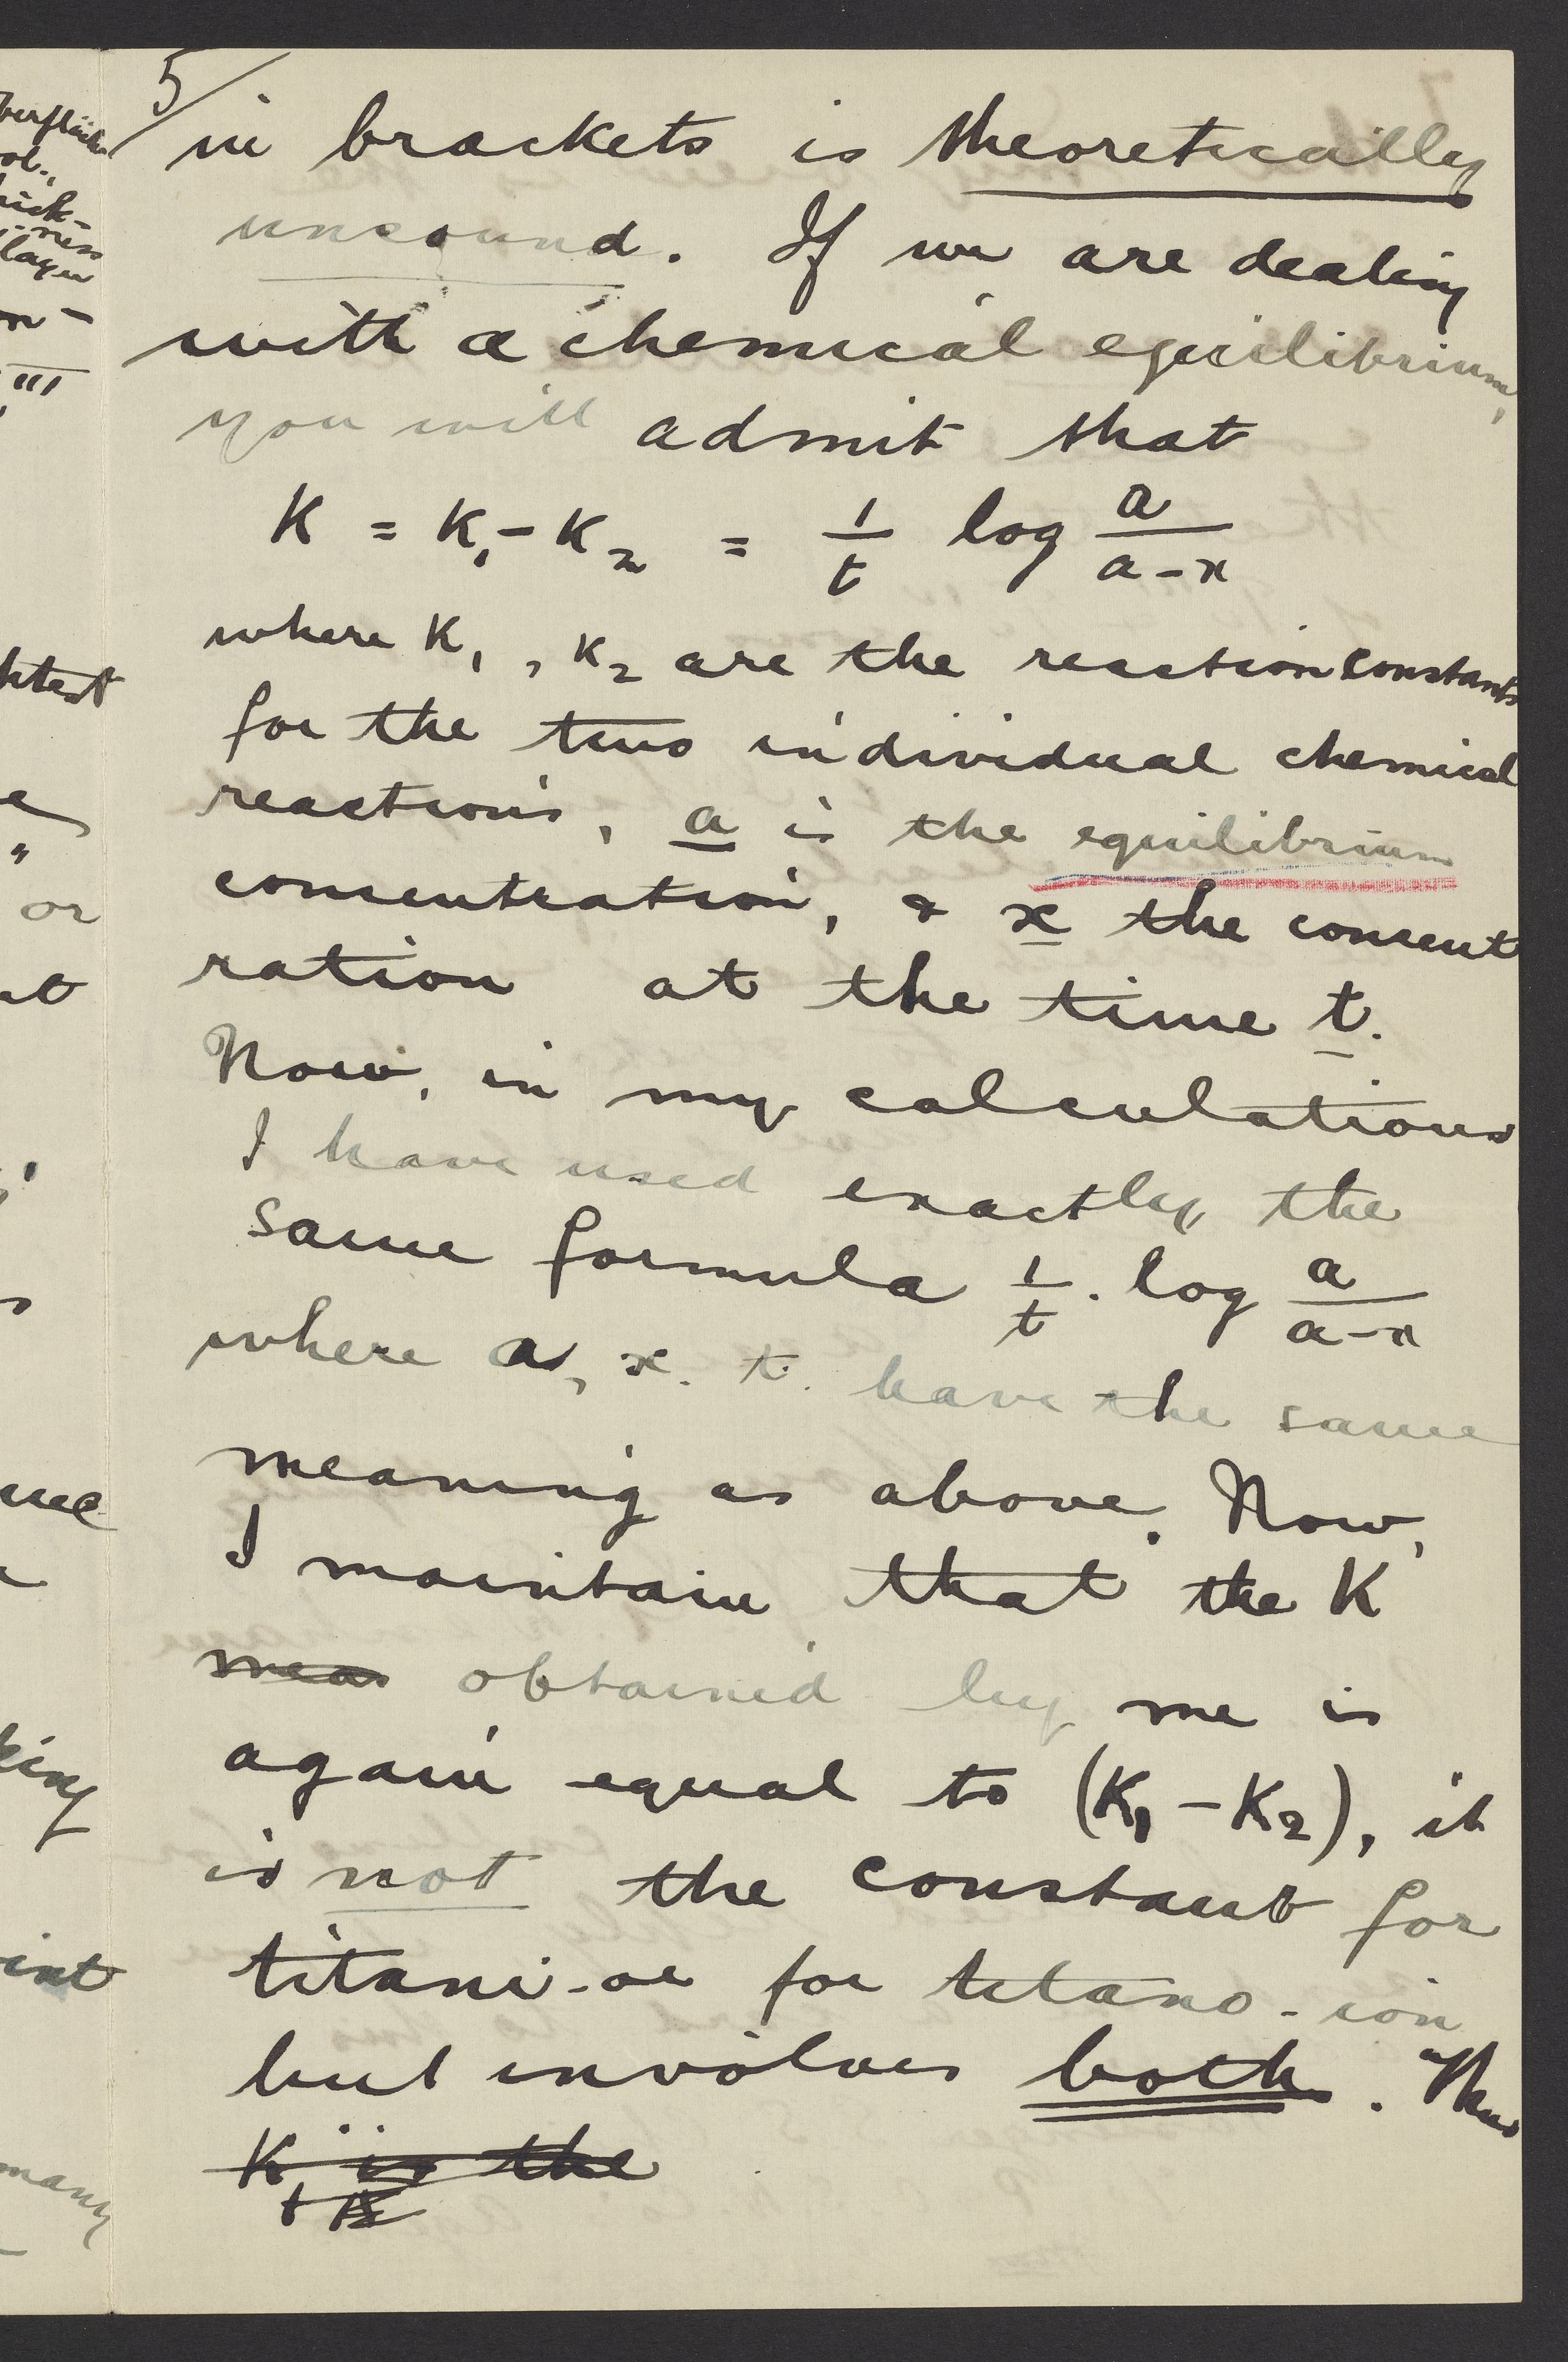 5/
in brackets is theoretically
unsound. If we are dealing
with a chemical equilibrium,
you will admit that
K = K₁ - K₂ = 1/t log a/a-x
where K₁, K₂ are the reaction constants
for the two individual chemical
reactions, a is the equilibrium
concentration, & x the concent
ration at the time t.
Now, in my calculations
I have used exactly the
same formula 1/t . log a/a-x
where a, x. t. have the same
meaning as above. Now,
I maintain that the K
meas obtained by me is
again equal to (K₁ - K₂), it
is not the constant for
titani-or for titano-ion
but involves both. Thus
K, is the
many
king
int
or